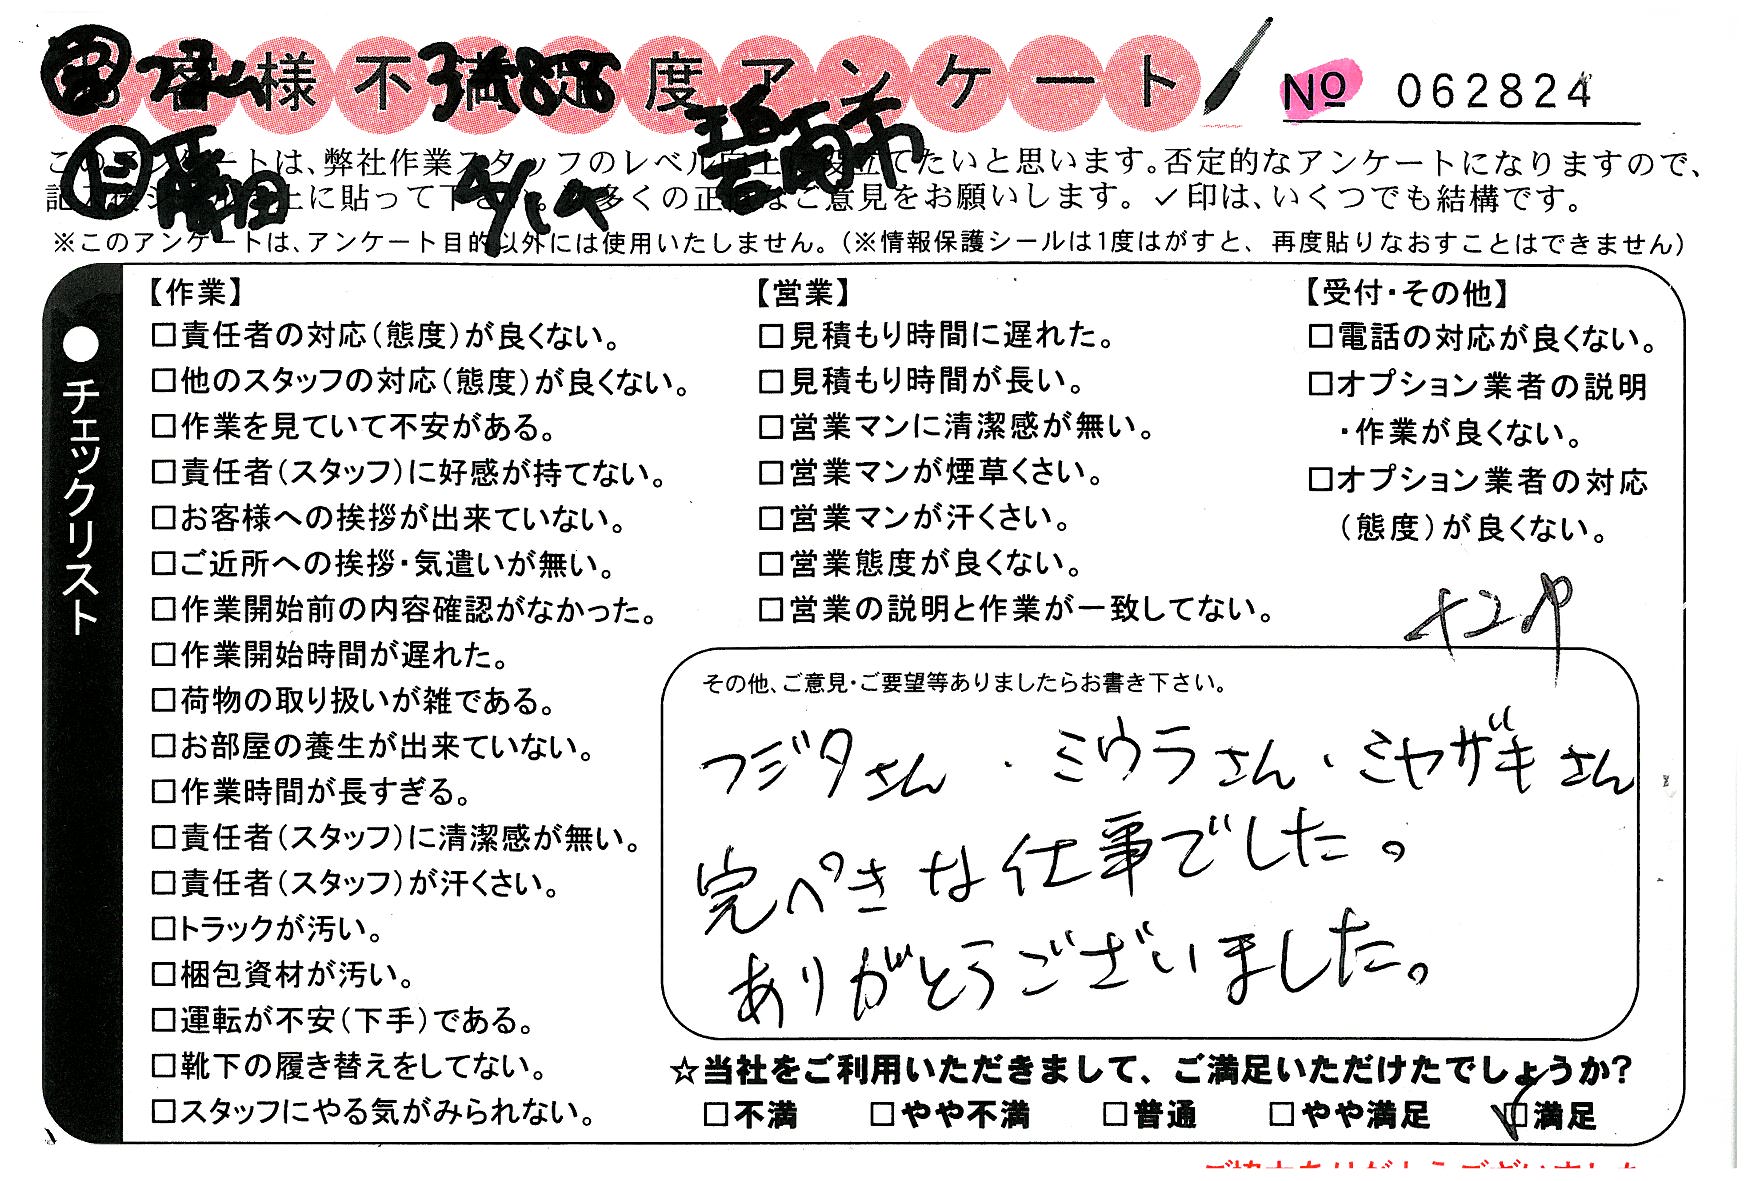 お客様不満足度アンケート
No 062824
碧南市
このアンケートは、弊社作業スタッフのレベル向上に役立てたいと思います。否定的なアンケートになりますので、
に貼って下さい。多くの正直なご意見をお願いします。✓印は、いくつでも結構です。
※このアンケートは、アンケート目的以外には使用いたしません。(※情報保護シールは1度はがすと、再度貼りなおすことはできません)
●チェックリスト
【作業】
□責任者の対応(態度)が良くない。
□他のスタッフの対応(態度)が良くない。
□作業を見ていて不安がある。
□責任者(スタッフ)に好感が持てない。
□お客様への挨拶が出来ていない。
□ご近所への挨拶・気遣いが無い。
□作業開始前の内容確認がなかった。
□作業開始時間が遅れた。
□荷物の取り扱いが雑である。
□お部屋の養生が出来ていない。
□作業時間が長すぎる。
□責任者(スタッフ)に清潔感が無い。
□責任者(スタッフ)が汗くさい。
□トラックが汚い。
□梱包資材が汚い。
□運転が不安(下手)である。
□靴下の履き替えをしてない。
□スタッフにやる気がみられない。
【営業】
□見積もり時間に遅れた。
□見積もり時間が長い。
□営業マンに清潔感が無い。
□営業マンが煙草くさい。
□営業マンが汗くさい。
□営業態度が良くない。
□営業の説明と作業が一致してない。
【受付・その他】
□電話の対応が良くない。
□オプション業者の説明
・作業が良くない。
□オプション業者の対応
(態度)が良くない。
その他、ご意見・ご要望等ありましたらお書き下さい。
フジタさん・ミウラさん・ミヤザキさん
完ぺきな仕事でした。
ありがとうございました。
☆当社をご利用いただきまして、ご満足いただけたでしょうか?
□不満 □やや不満 □普通 □やや満足 ☑満足